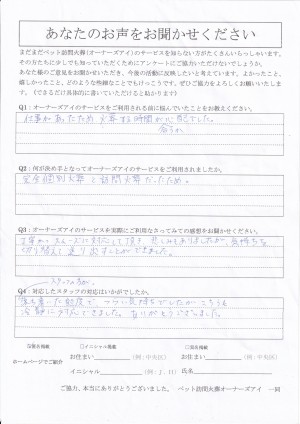 あなたのお声をお聞かせください
まだまだペット訪問火葬(オーナーズアイ)のサービスを知らない方がたくさんいらっしゃいます。
その方たちに少しでも知っていただくためにアンケートにご協力いただけないでしょうか。
あなた様のご意見をお聞かせいただき、今後の活動に反映したいと考えています。よかったこと、
嬉しかったこと、どのような些細なことでもけっこうです。ぜひご協力をよろしくお願いいたしま
す。(できるだけ具体的に書いていただけると助かります)
Q1:オーナーズアイのサービスをご利用される前に悩んでいたことをお教えください。
仕事があったため 火葬する時間が心配でした。
Q2:何が決め手となってオーナーズアイのサービスをご利用されましたか。
完全個別火葬と訪問火葬だったため。
Q3:オーナーズアイのサービスを実際にご利用なさってみての感想をお聞かせください。
丁寧かつスムーズに対応して頂き 悲しみもありましたが、気持ちを
切り替えて 送り出すことができました。
スタッフの方が、
Q4:対応したスタッフの対応はいかがでしたか。
落ち着いた態度で、つらい気持ちでしたが こちらも
冷静に対応できました。ありがとうございました。
ホームページでご紹介
お住まい (例:中央区)
お住まい (例:中央区)
イニシャル (例:J.H)
ご協力、本当にありがとうございました。 ペット訪問火葬オーナーズアイ 一同